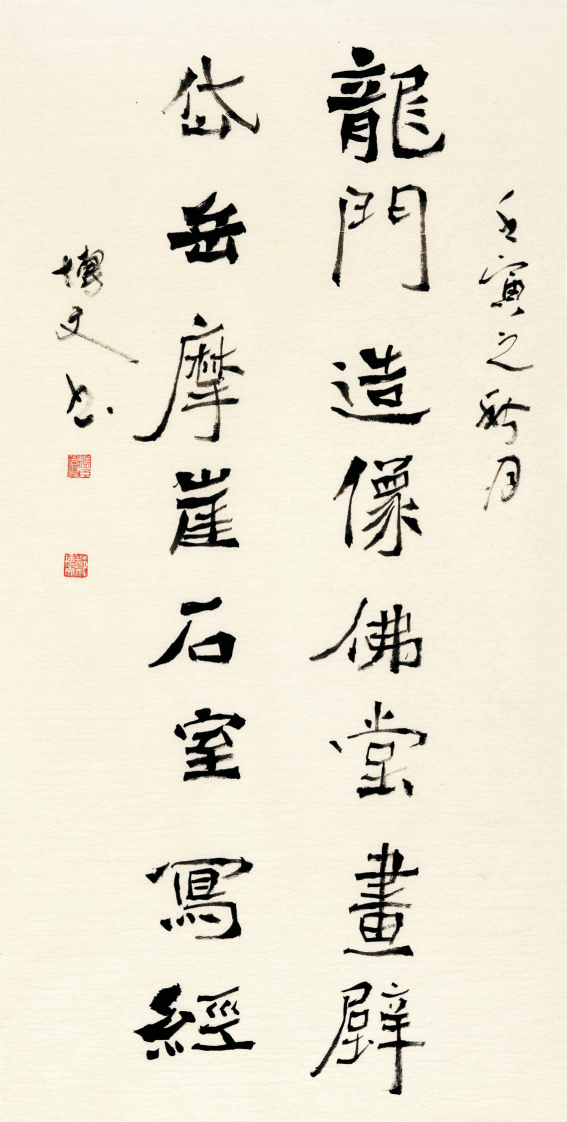 壬寅之秋月
龍門造像佛堂畫壁
岱岳摩崖石室寫經
博文书